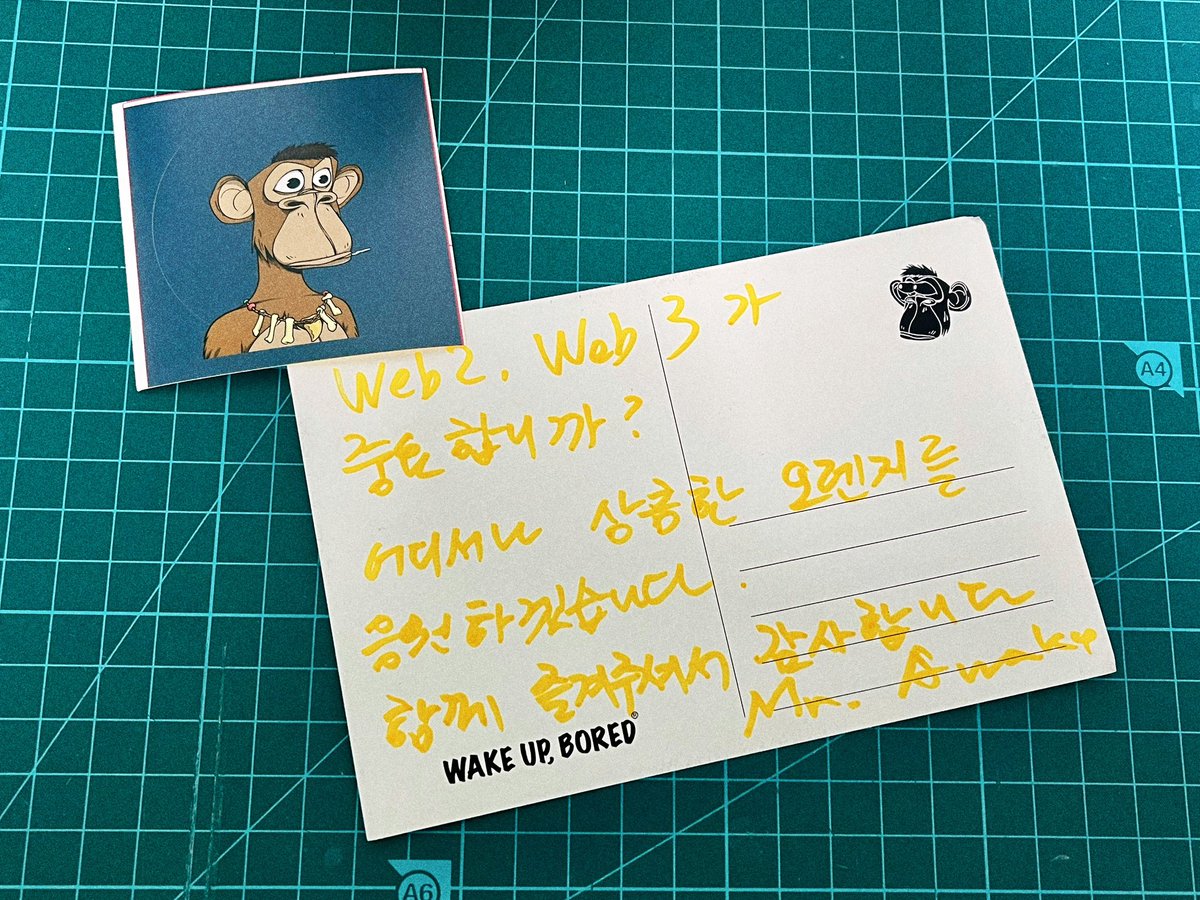 Web2. Web 3 가
중요합니까?
어디서나 상큼한 오렌지를
응원하겠습니다.
함께 즐겨주셔서 감사합니다
Mr. Awake
WAKE UP, BORED®
A4
A6